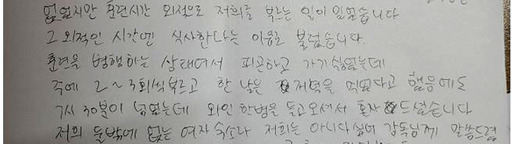 없었지만 훈련시간 외적으로 저희를 부르는 일이 있었습니다
그 외적인 시간엔 식사한다는 이유로 불렀습니다
훈련을 병행하는 상태여서 피곤하고 가기 싫었는데
주에 2~3회씩 부르고 한 날은 저녁을 먹었다고 했음에도
7시 30분이 넘었는데 와인 한병을 들고오셔서 혼자 드셨습니다
저희 둘밖에 없는 여자숙소라 저희는 아니다싶어 감독님께 말씀드렸